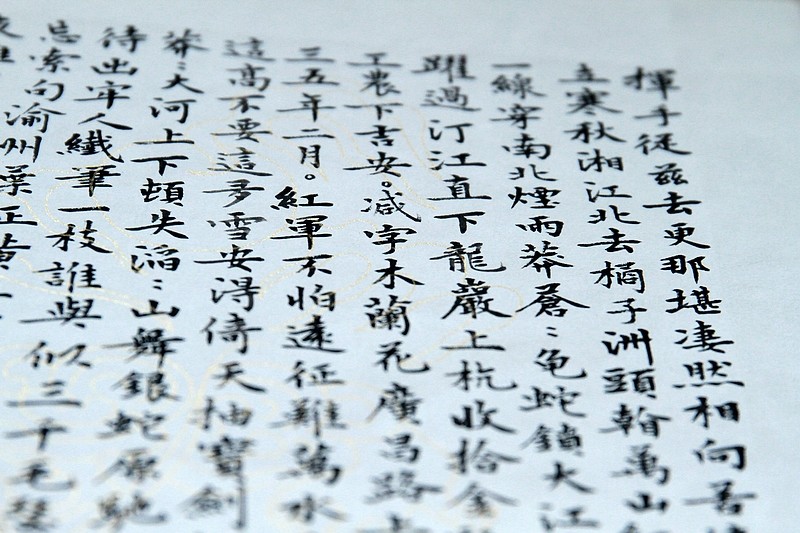 揮手從茲去更那堪凄然相向苦
立寒秋湘江北去橘子洲頭看萬山
一線穿南北煙雨莽蒼〻龜蛇鎖大江
躍過汀江直下龍巖上杭收拾金
工農下吉安。减字木蘭花廣昌路
三五年二月。紅軍不怕遠征難萬水
這高不要這多雪安得倚天抽寶劍
莽〻大河上下頓失滔〻山舞銀蛇原馳
待出牢人纖筆一枝誰與似三千毛瑟
忘索句渝州葉正黃